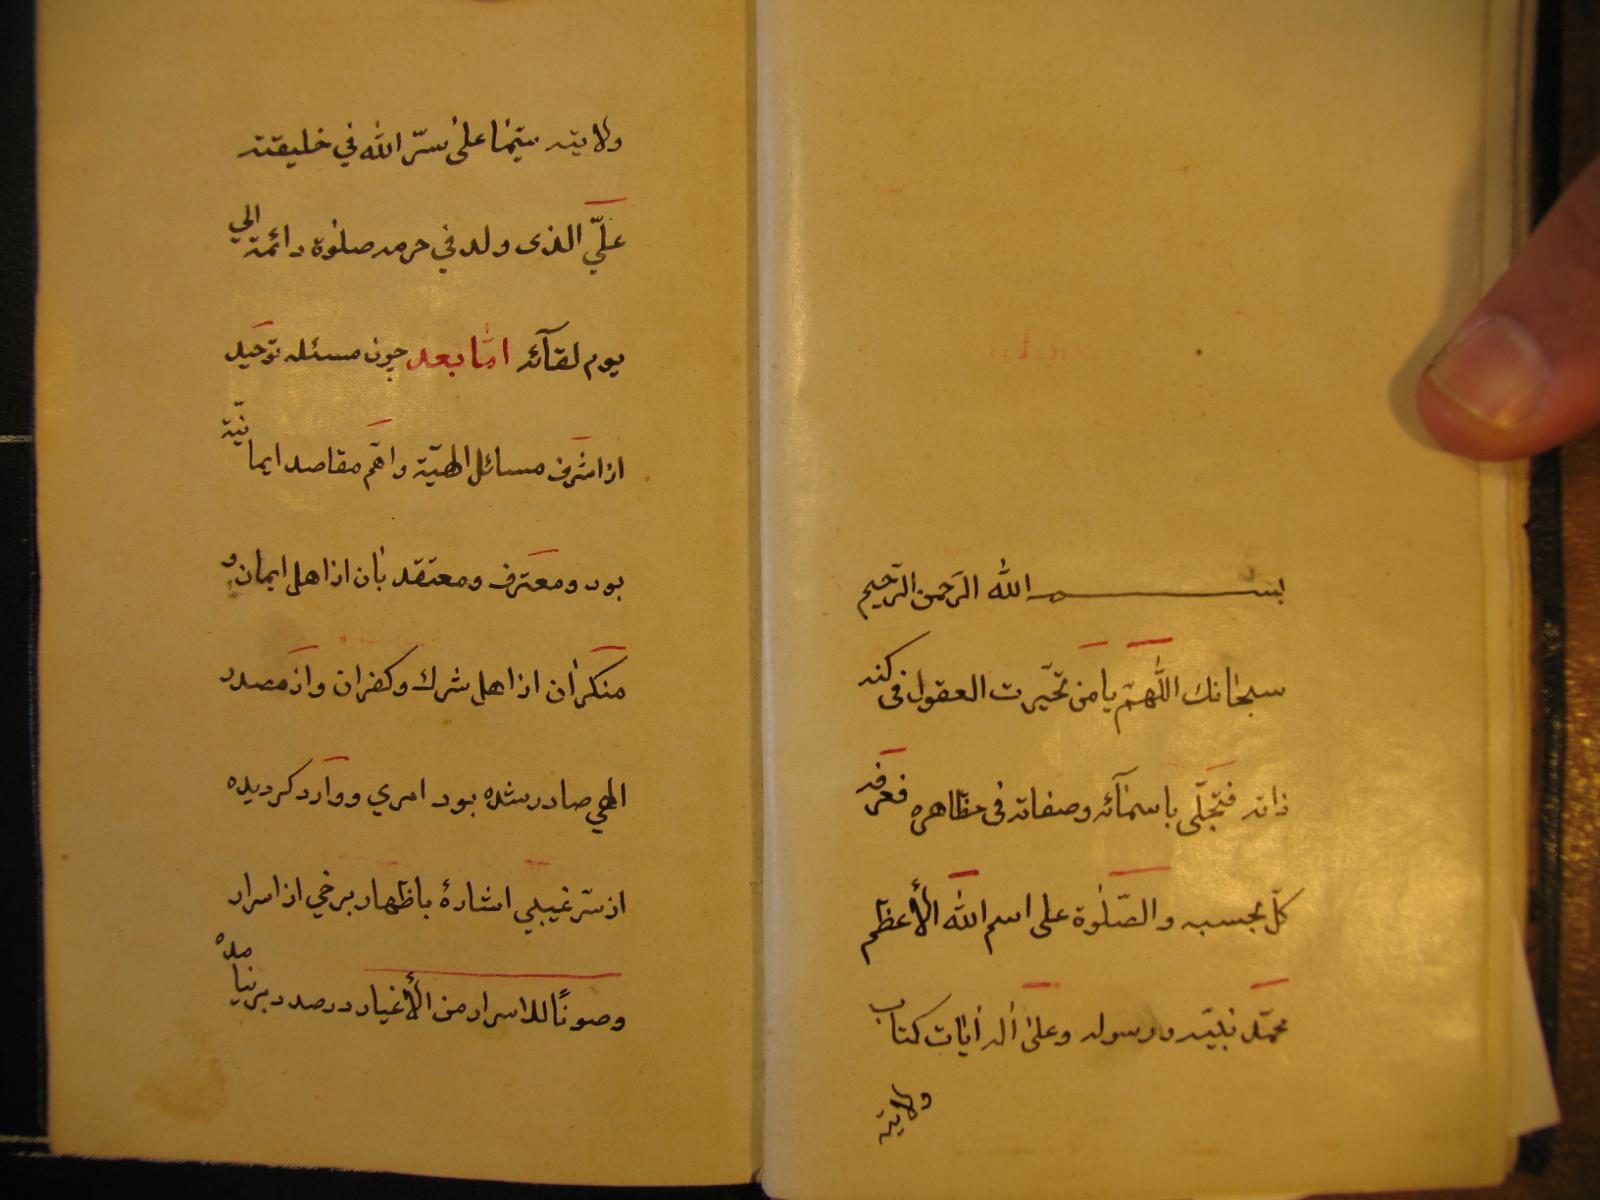 بسم الله الرحمن الرحيم
سبحانك اللّهمّ يا من تحيّرت العقول فى كنه
ذاته فتجلّى باسمآئه وصفاته فى مظاهره فعرفه
كلّ بحسبه والصّلوة على اسم الله الأعظم
محمّد نبيّه ورسوله وعلى اله ايات كتاب
ولايته
ولايته سيّما على سرّ الله في خليقته
عليّ الذى ولد في حرمه صلوة دائمة الي
يوم لقآئه امّا بعد چون مسئله توحيد
از اشرف مسائل الهيّة واهمّ مقاصد ايمانيّة
بود ومعترف ومعتقد بآن از اهل ايمان و
منكران از اهل شرك وكفران واز مصدر
الهي صادر شده بود امري ووارد كرديده
از سرّ غيبي اشارهٔ باظهار برخي از اسرار
وصونًا للاسرار من الأغيار درصدد برنيامده